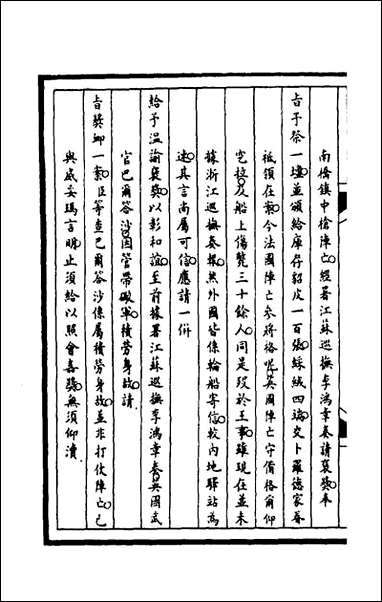 南橋鎮中槍陣亡經署江蘇巡撫李鴻章奏請褒獎奉
旨予祭一壇並頒給庫存貂皮一百張綵絨四端交卜羅德家眷
祗領在案今法國陣亡參將格呢英國陣亡守備格爾仰
安拉及船上傷斃三十餘人同是歿於王事雖現在並未
據浙江巡撫奏報然外國皆係輪船寄信較內地驛站為
速其言尚屬可信應請一併
給予溫諭褒獎以彰和誼至前據署江蘇巡撫李鴻章奏英國武
官巴爾答沙因管帶礮軍積勞身故請
旨獎卹一案臣等查巴爾答沙係屬積勞身故並非打仗陣亡已
與威妥瑪言明止須給以照會嘉獎無須仰瀆